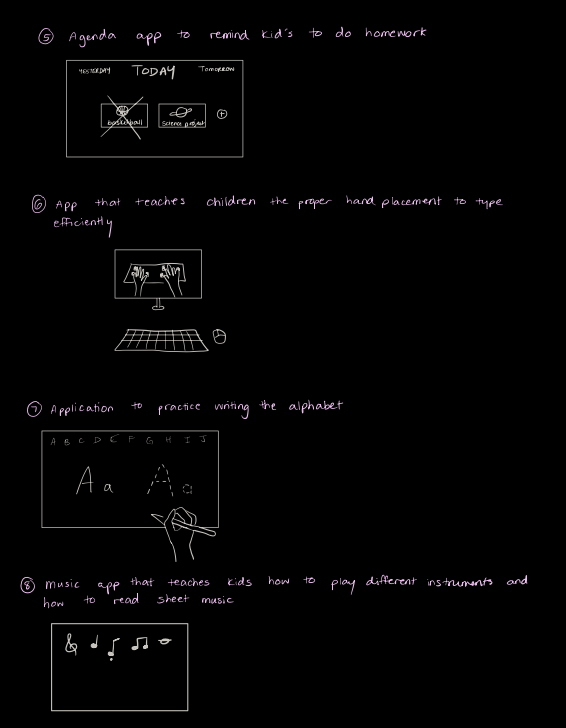 ⑤ Agenda app to remind kid's to do homework
YESTERDAY TODAY TOMORROW
basketball Science project
⑥ App that teaches children the proper hand placement to type
efficiently
⑦ Application to practice writing the alphabet
A B C D E F G H I J
A a A a
⑧ Music app that teaches kids how to play different instruments and
how to read sheet music